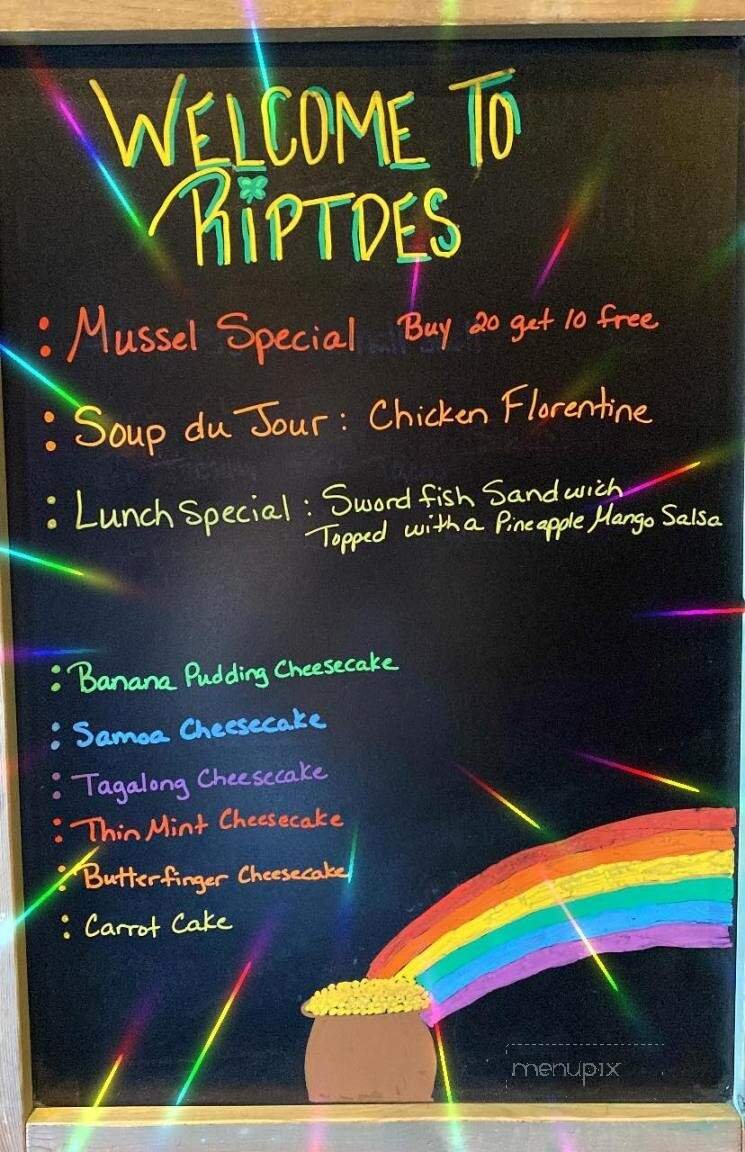 WELCOME TO
RiPTDES
: Mussel Special Buy 20 get 10 free
: Soup du Jour : Chicken Florentine
: Lunch Special : Swordfish Sandwich
Topped with a Pineapple Mango Salsa
: Banana Pudding Cheesecake
: Samoa Cheesecake
: Tagalong Cheesecake
: Thin Mint Cheesecake
: Butterfinger Cheesecake
: Carrot Cake
menupix